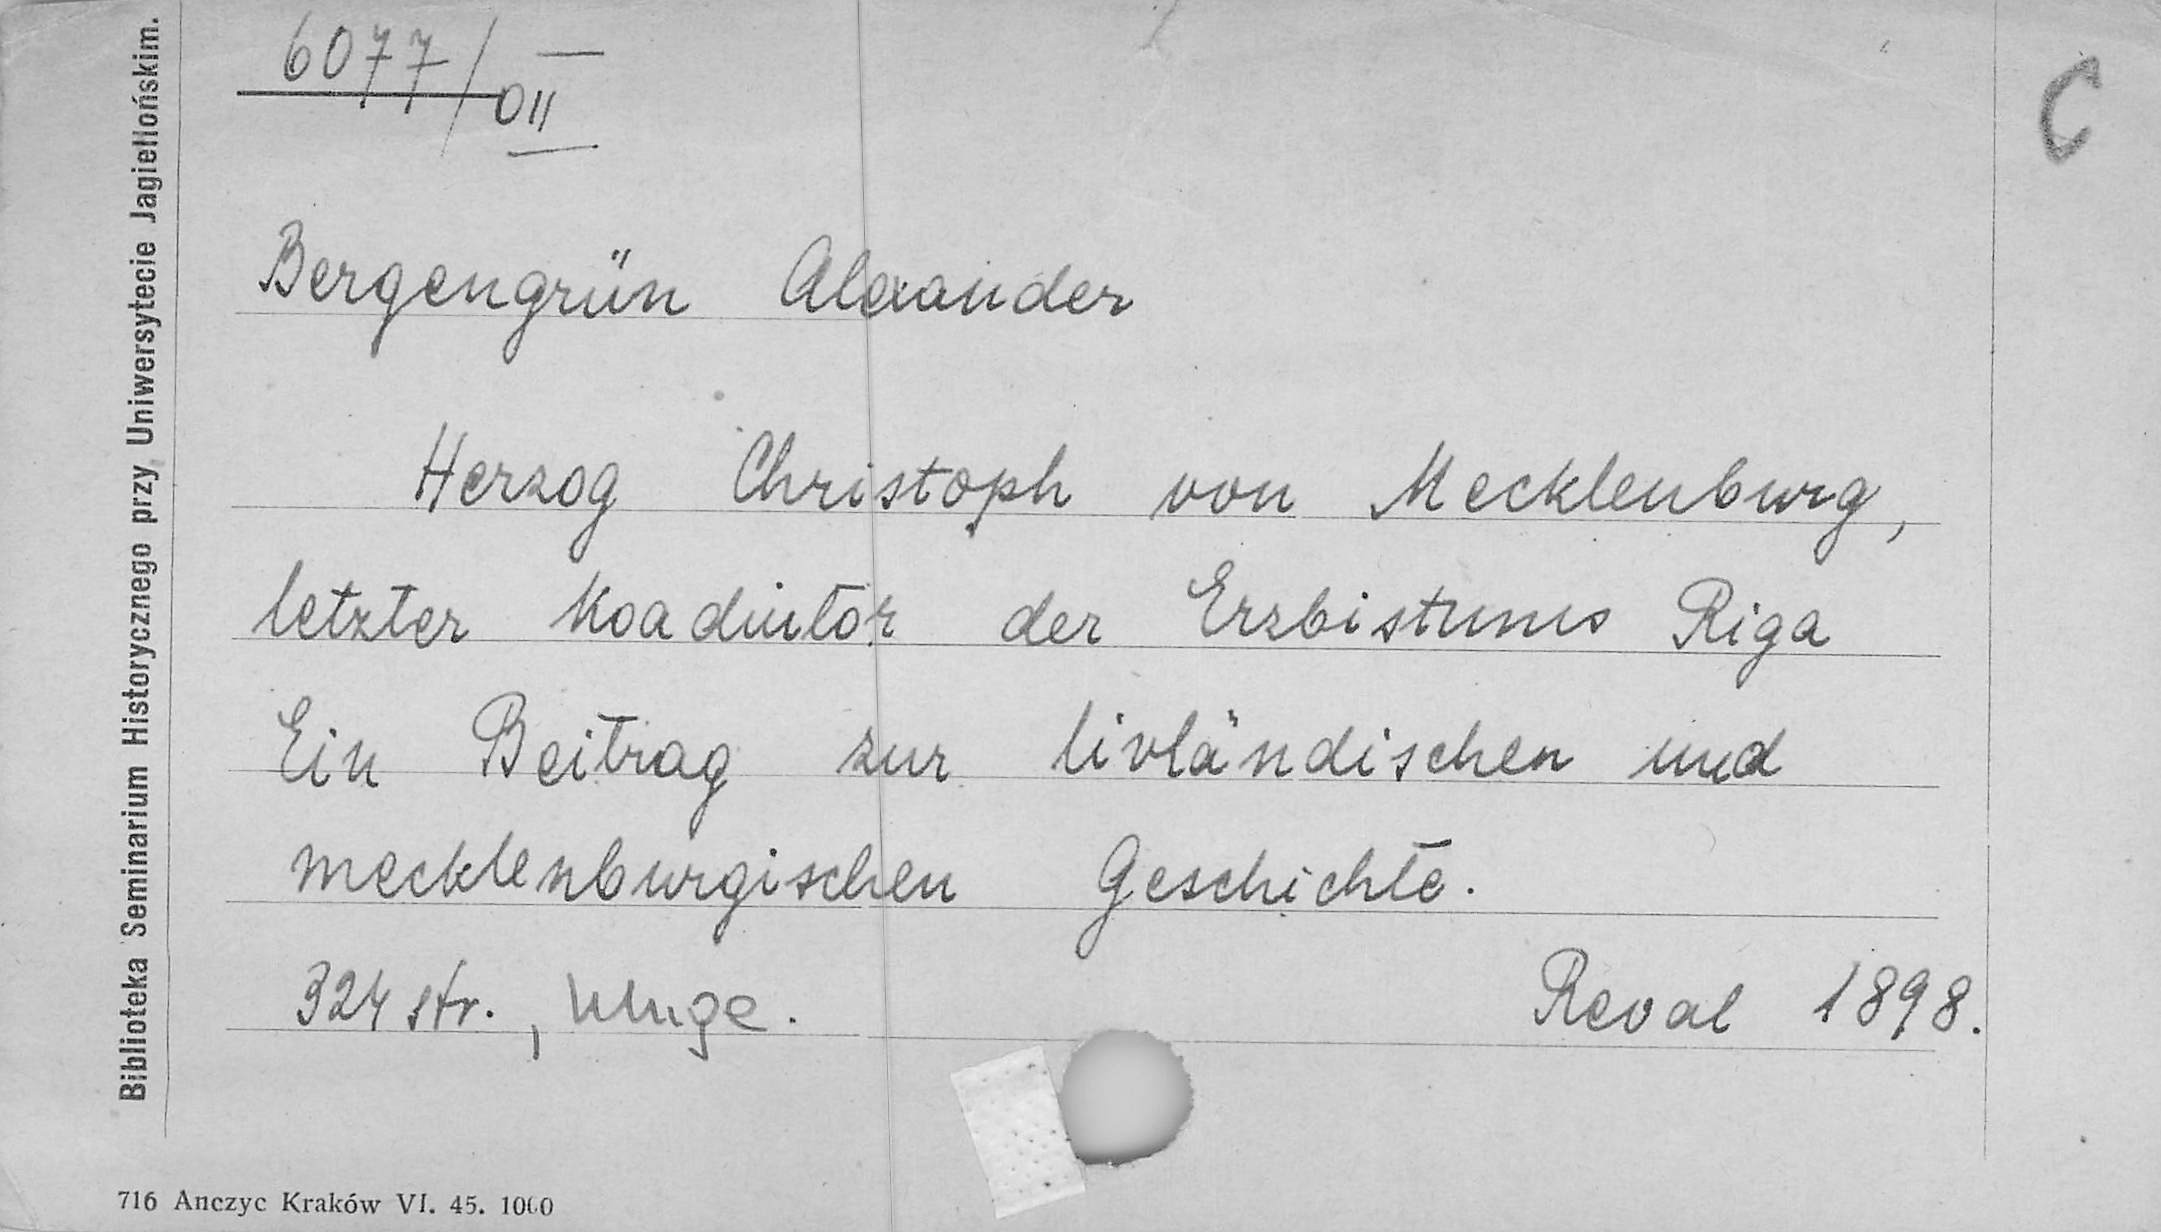 6077/OII
C
Bergengrün Alexander
Herzog Christoph von Mecklenburg,
letzter Koadiutor der Erzbistums Riga
Ein Beitrag zur livländischen und
mecklenburgischen Geschichte.
324 str.,
Reval 1898.
Biblioteka Seminarium Historycznego przy Uniwersytecie Jagiellońskim.
716 Anczyc Kraków VI. 45. 1000